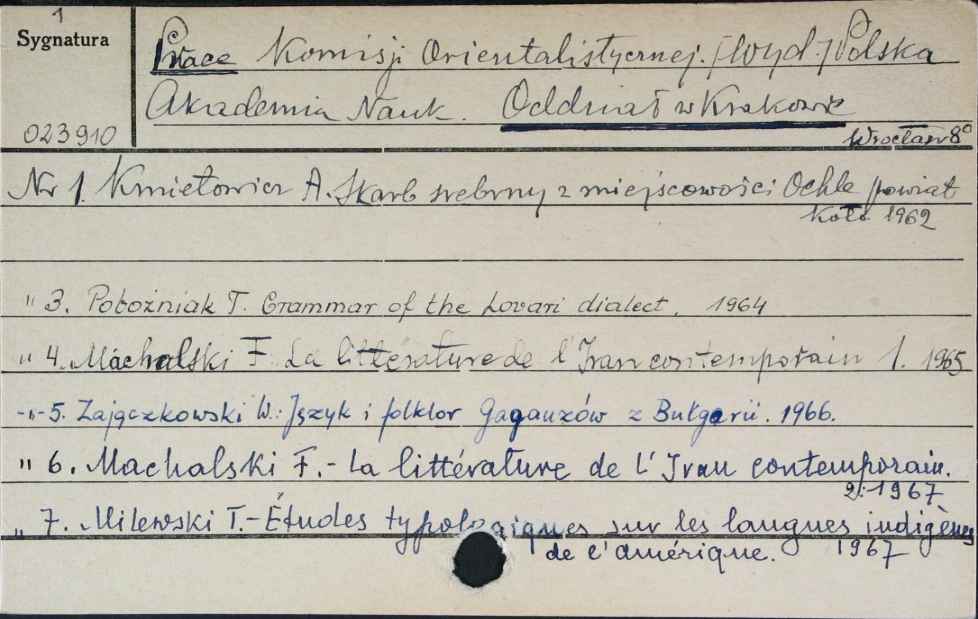 1
Sygnatura
Prace Komisji Orientalistycznej. /wyd./ Polska
Akademia Nauk. Oddział w Krakowie
023910
Wrocław 8°
Nr 1. Kmietowicz A. Skarb srebrny z miejscowości Ochle /powiat
Koło 1962
" 3. Pobożniak T. Grammar of the Lovari dialect. 1964
" 4. Machalski F. La littérature de l'Iran contemporain 1. 1965
-"- 5. Zajączkowski W.: Język i folklor Gagauzów z Bułgarii. 1966.
" 6. Machalski F. - La littérature de l'Iran contemporain.
2: 1967
" 7. Milewski T. - Études typologiques sur les langues indigènes
de l'amérique. 1967